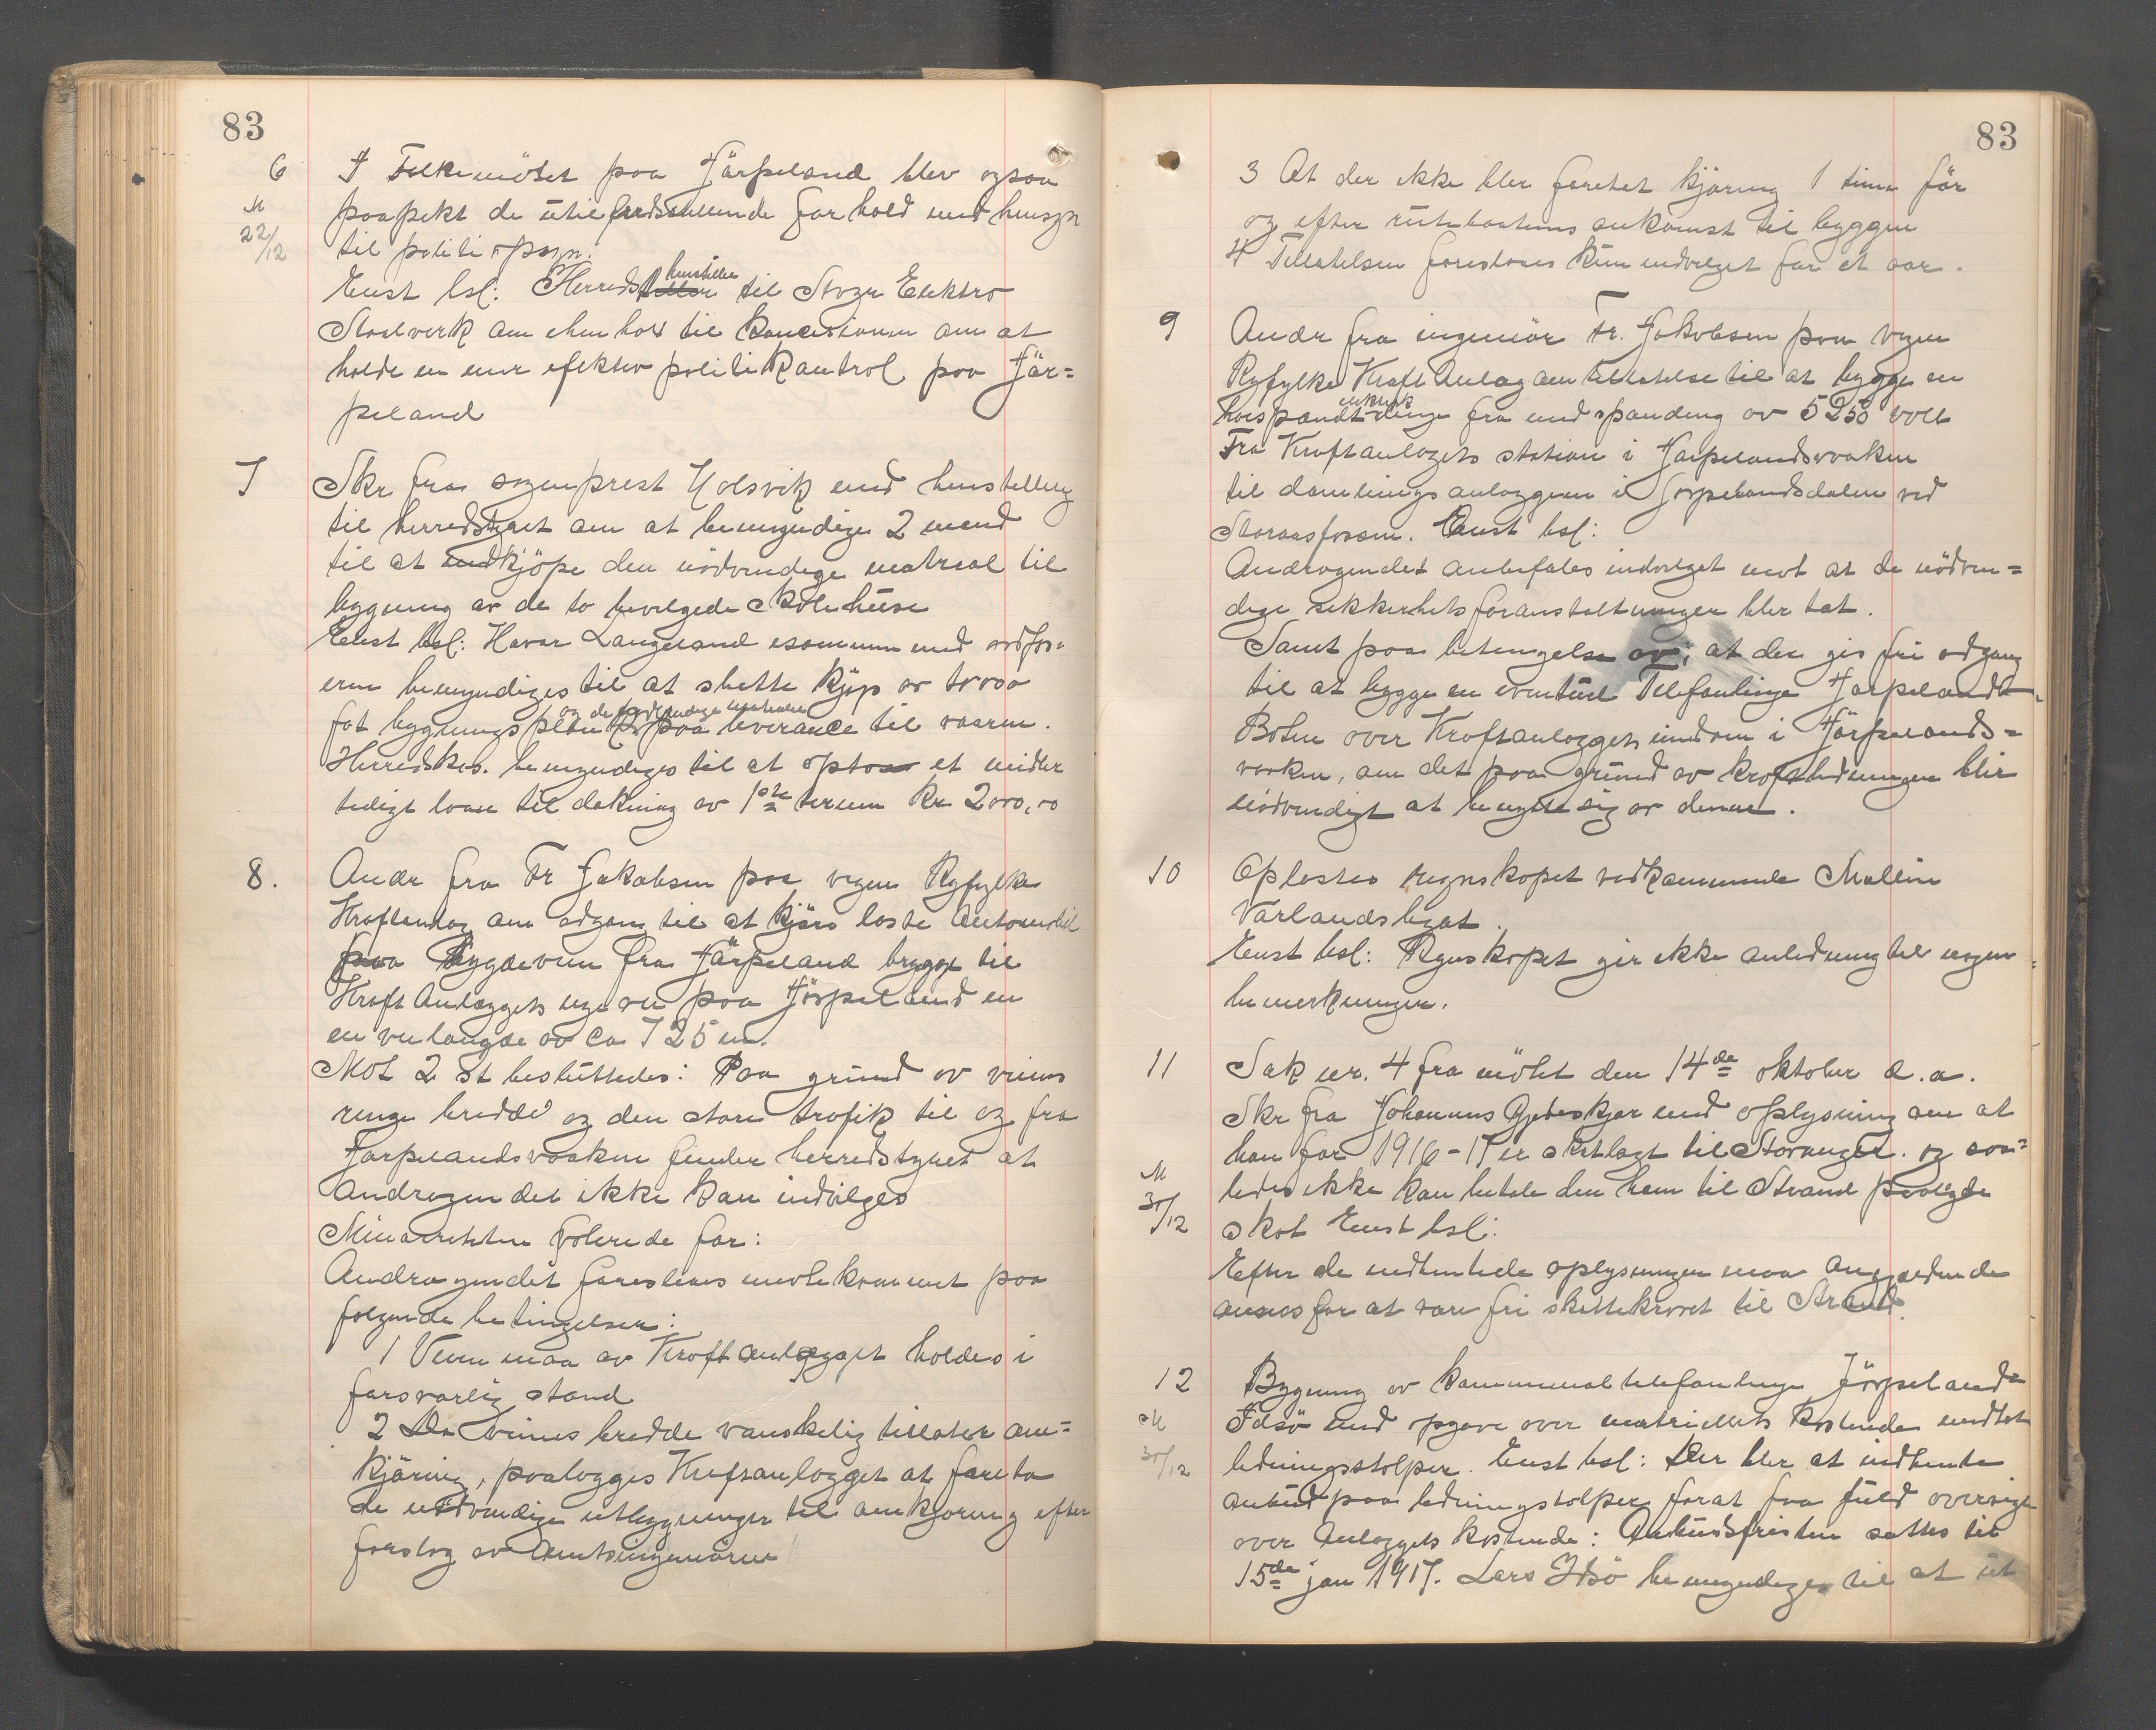 83
6 I Folkemötet paa Jörpeland blev ogsaa
M 22/12
paapekt de utilfredsstillende forhold med hensyn
til politiopsyn.
Enst bsl: Herredst henstiller til Stvgr Elektro
Staalverk om i henhold til koncesionen om at
holde en mer efektiv politi kontrol paa Jör=
peland
7 Skr fra sogneprest Holsvik med henstelling
til herredstyret om at bemyndige 2 mend
til at indkjöpe den nödvendige matrial til
bygning av de to bevilgede skolehuse
Enst bsl: Havar Langeland i sammen med ordför=
eren bemyndiges til at slutte kjöp av
fot bygningsplan og de nödvendige materialer paa leverance til vaaren.
Herredskas. bemyndiges til at opta et midler
tidigt laan til dekning av 1ste termin Kr 2000,00
8. Andr fra Fr Jakobsen paa vegne Ryfylke
Kraftanlæg om adgang til at kjöre laste Automobil
paa bygdeveien fra Jörpeland brygge til
Kraft Anlæggets nye vei paa Jörpeland en
en veilængde av ca 725 m.
Mot 2 st besluttedes: Paa grund av veiens
ringe bredde og den store trafik til og fra
Jörpelandsvaagen finder herredstyret at
Andragendet ikke kan indvilges
Minoriteten voterede for:
Andragendet foreslaaes imötekommet paa
fölgende betingelser:
1 Veien maa av Kraftanlægget holdes i
forsvarlig stand
2 Da veiens bredde vanskelig tillater om=
kjöring, paalægges Kraftanlægget at foreta
de nödvendige utbygninger til omkjöring efter
forslag av Amtsingeniören
83
3 At der ikke blir foretat kjöring 1 time för
og efter rutebaatens ankomst til bryggen
4 Tillatelsen foreslaaes kun indvilget for et aar.
9 Andr fra ingeniör Fr. Jakobsen paa vegne
Ryfylke Kraft Anlæg om tillatelse til at bygge en
höispændt elektrisk linje fra med spænding av 5250 volt
Fra Kraftanlægets station i Jörpelandsvaagen
til dæmningsanlæggene i Jörpelandsdalen ved
Storaasfossen. Enst bsl:
Andragendet anbefales indvilget mot at de nödven=
dige sikkerhetsforanstaltninger blir tat.
Samt paa betingelse av; at der gis fri adgang
til at bygge en eventuel Telefonlinje Jörpeland-
Botne over Kraftanlæggets eiendom i Jörpelands=
vaagen, om det paa grund av kraftledningen blir
nödvendigt at benytte sig av denne.
10 Oplæstes regnskapet vedkommende Mallin
Varlands legat.
Enst bsl: Regnskapet gir ikke anledning til nogen
bemerkninger.
11 Sak nr. 4 fra mötet den 14de oktober d.a.
Skr fra Johannes Gjeteskjær med oplysning om at
han for 1916-17 er skatlagt til Stavanger. og saa=
M 30/12
ledes ikke kan betale den ham til Strand paalagde
skat Enst bsl:
Efter de indhentede oplysninger maa Angjældende
ansees for at være fri skattekravet til Strand.
12 Bygning av kommunal telefonlinje Jörpeland=
M 30/12
Idsö med opgave over matriellets kostende undtat
ledningsstolper. Enst bsl: Der blir at indhente
anbud paa ledningstolper forat faa fuld oversigt
over Anlæggets kostende: Anbudsfristen sattes til
15de jan 1917. Lars Idsö bemyndiges til at ut